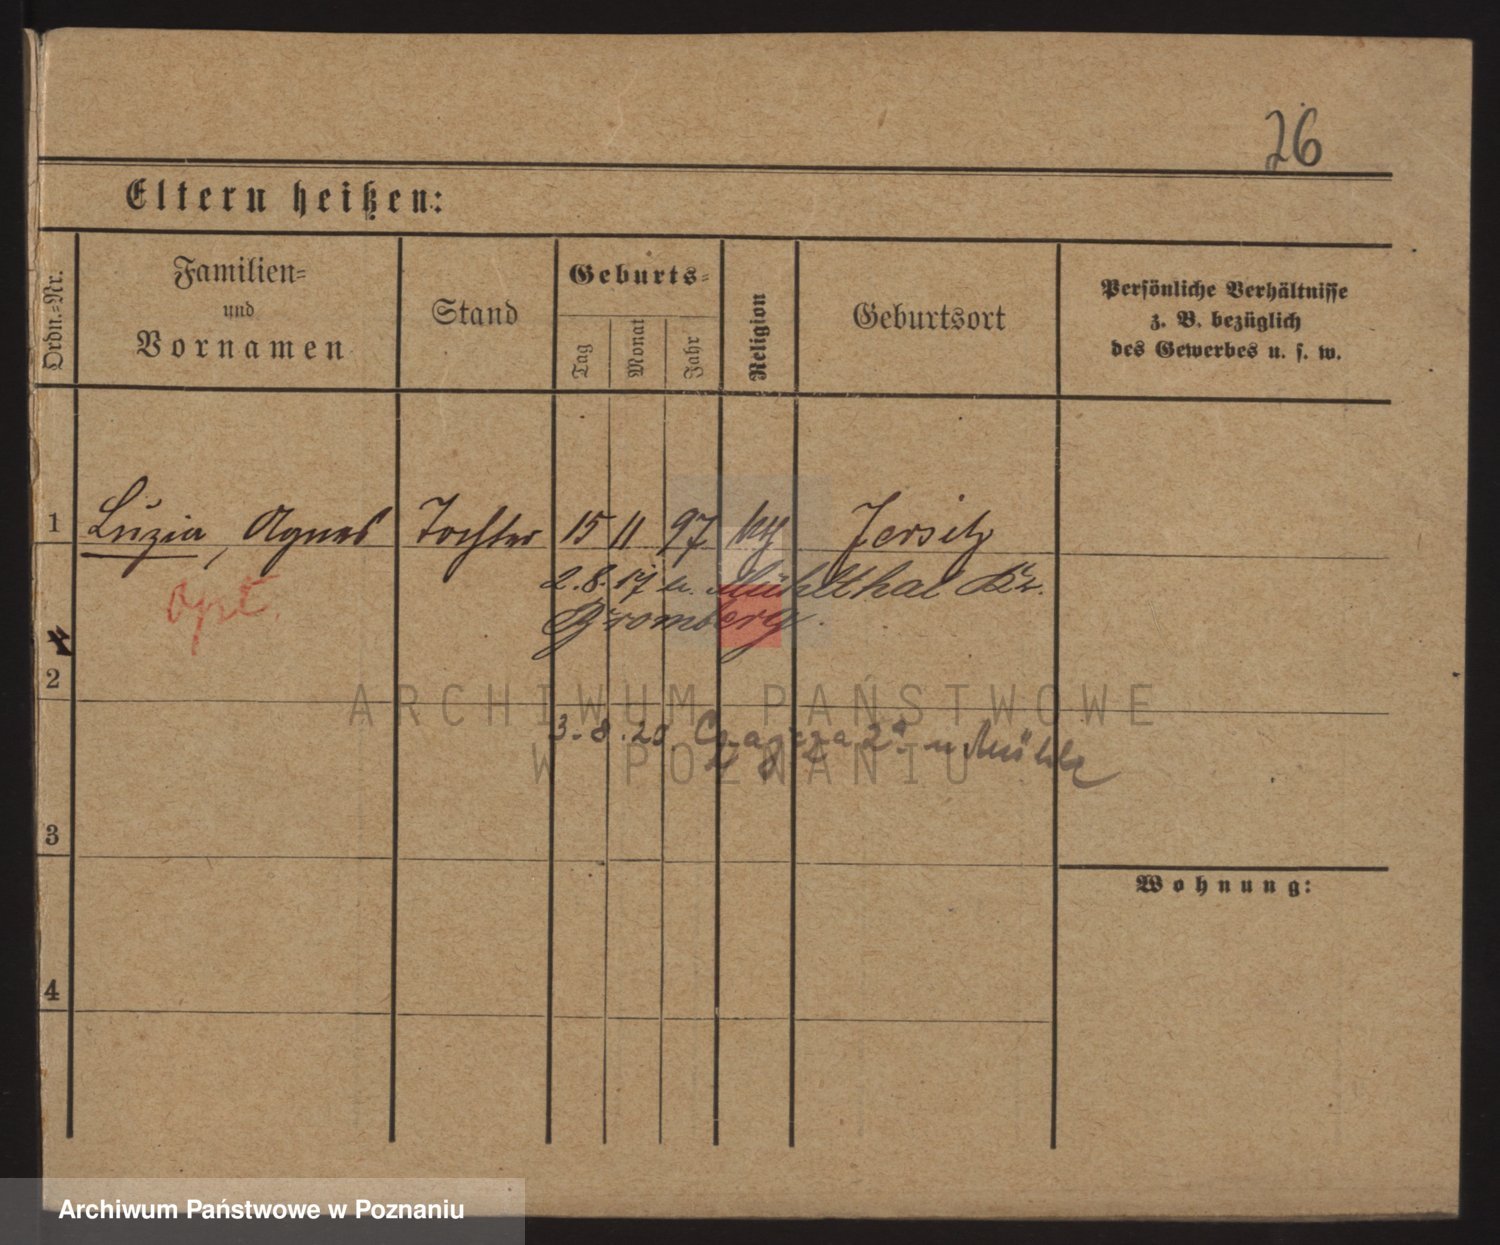 26
Eltern heißen:
Ordn.-Nr.
Familien-
und
Vornamen
Stand
Geburts-
Tag
Monat
Jahr
Religion
Geburtsort
Persönliche Verhältnisse
z. B. bezüglich
des Gewerbes u. s. w.
1 Luzia, Agnes Tochter 15 11 97 kth Jersitz
2.8.17 n. Mühlthal Kr.
Bromberg.
Opt.
2
3.8.20. Czajcza 2a n Mühle
3
Wohnung:
4
ARCHIWUM PAŃSTWOWE
W POZNANIU
Archiwum Państwowe w Poznaniu